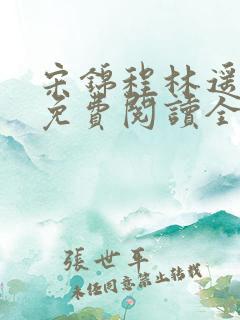 宋錦程林遥
免費閱讀全
張世平
未經同意禁止轉載